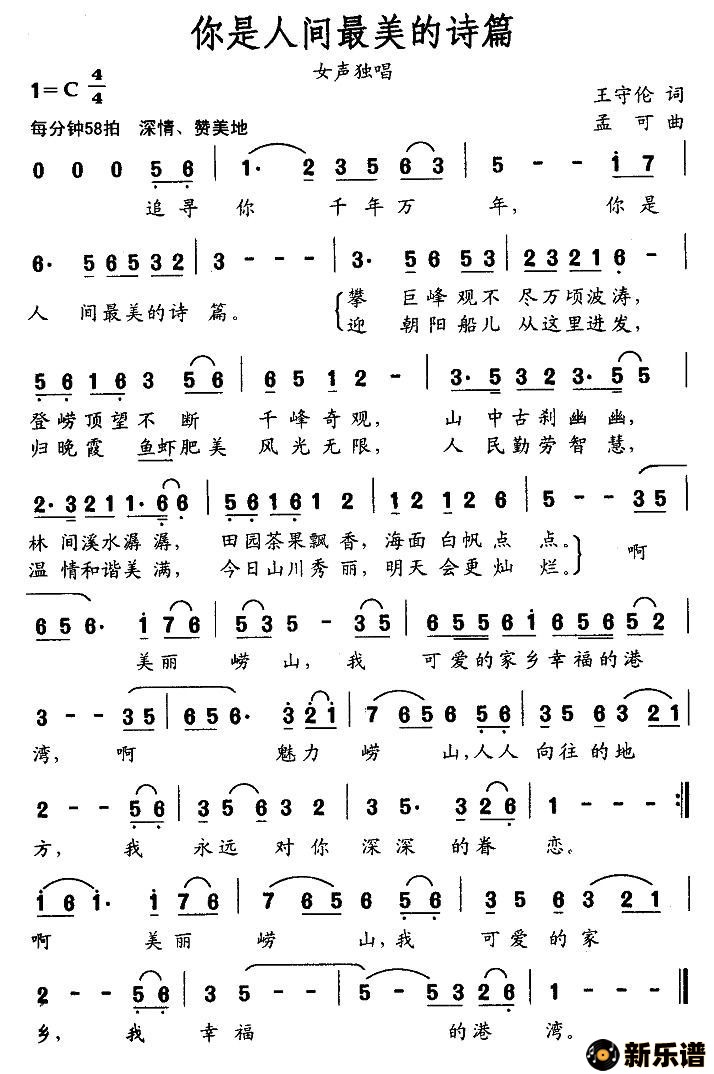 你是人间最美的诗篇
女声独唱
1=C 4/4
王守伦 词
每分钟58拍 深情、赞美地
孟 可 曲
0 0 0 5 6 | 1· 2 3 5 6 3 | 5 - - i 7
追寻 你 千年万 年, 你是
6· 5 6 5 3 2 | 3 - - - | 3· 5 6 5 3 | 2 3 2 1 6 -
人 间最美的诗 篇。 攀 巨峰观不 尽万顷波涛,
迎 朝阳船儿 从这里进发,
5 6 1 6 3 5 6 | 6 5 1 2 - | 3· 5 3 2 3· 5 5
登崂顶望不 断 千峰奇观, 山 中古刹幽幽,
归晚霞 鱼虾肥美 风光无限, 人 民勤劳智慧,
2· 3 2 1 1· 6 6 | 5 6 1 6 1 2 | 1 2 1 2 6 | 5 - - 3 5
林 间溪水潺潺, 田园茶果飘香, 海面白帆点 点。 啊
温 情和谐美满, 今日山川秀丽, 明天会更灿 烂。
6 5 6· i 7 6 | 5 3 5 - 3 5 | 6 5 5 6 i 6 5 6 5
美丽 崂山, 我 可爱的家乡幸福的港
3 - - 3 5 | 6 5 6· 3 2 i | 7 6 5 6 5 6 | 3 5 6 3 2 1
湾, 啊 魅力 崂 山,人人 向往的地
2 - - 5 6 | 3 5 6 3 2 | 3 5· 3 2 6 | 1 - - - :‖
方, 我 永远 对你 深深 的眷 恋。
i 6 i· i 7 6 | 7 6 5 6 5 6 | 3 5 6 3 2 1
啊 美丽 崂 山,我 可爱的家
2 - - 5 6 | 3 5 - - | 5 - 5 3 2 6 | 1 - - - ‖
乡, 我 幸福 的港 湾。
新乐谱